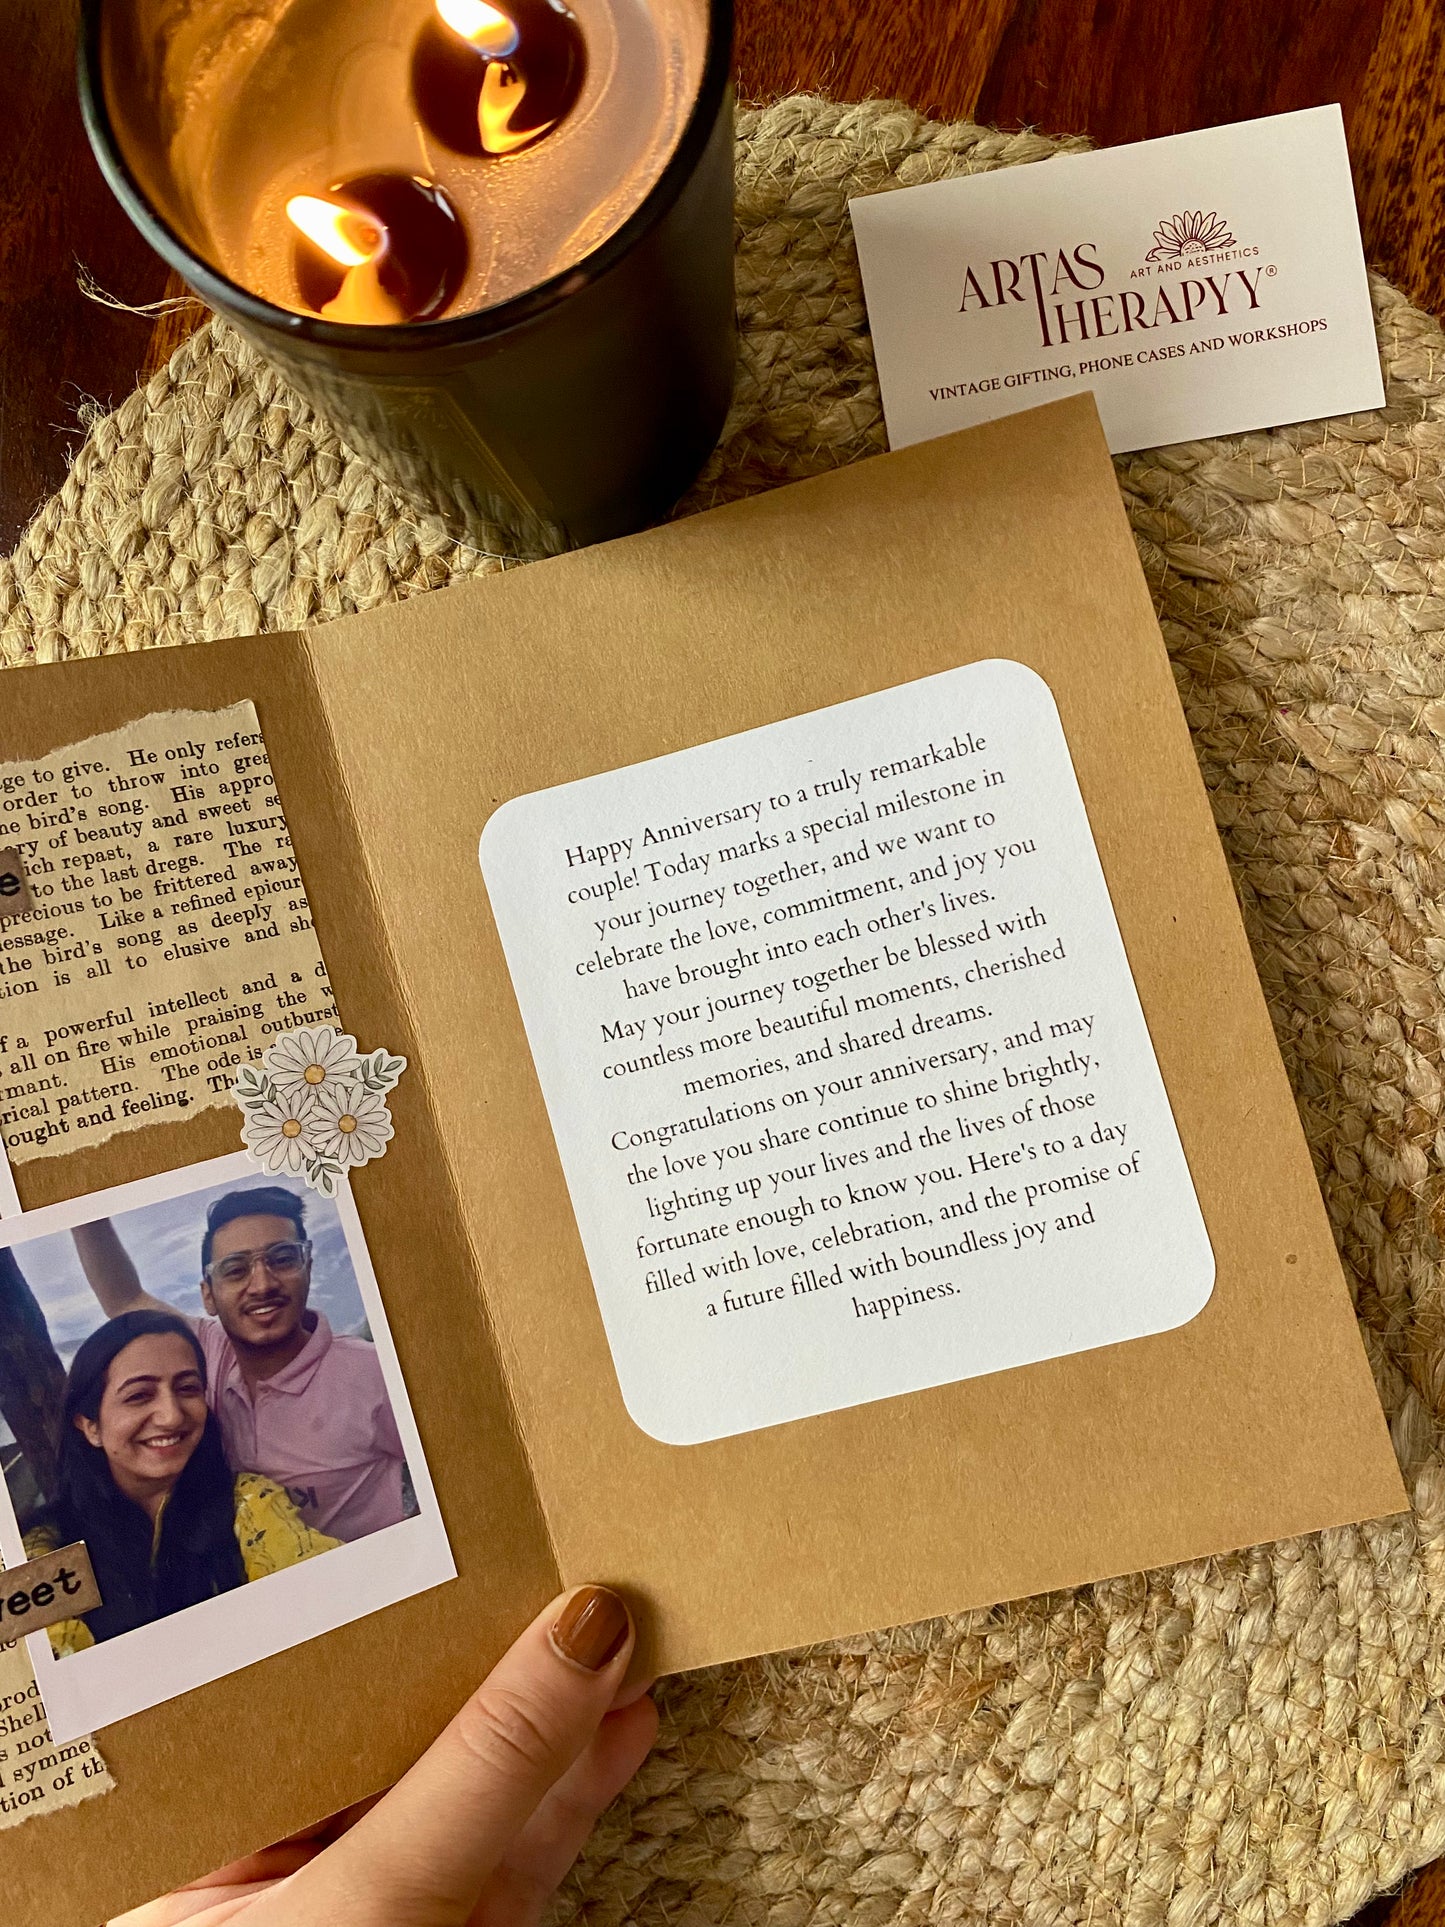 ARTAS
ART AND AESTHETICS
THERAPYY®
VINTAGE GIFTING, PHONE CASES AND WORKSHOPS
ge to give. He only refers
order to throw into
bird's song. His
of beauty and sweet
repast, a rare luxury
to the last dregs. The
e
precious to be frittered away
Like a refined
the bird's song as deeply as
is all to elusive and
a powerful intellect and a
all on fire while praising the
His emotional
pattern. The ode is
and feeling.
eet
not
of
Happy Anniversary to a truly remarkable
couple! Today marks a special milestone in
your journey together, and we want to
celebrate the love, commitment, and joy you
have brought into each other's lives.
May your journey together be blessed with
countless more beautiful moments, cherished
memories, and shared dreams.
Congratulations on your anniversary, and may
the love you share continue to shine brightly,
lighting up your lives and the lives of those
fortunate enough to know you. Here's to a day
filled with love, celebration, and the promise of
a future filled with boundless joy and
happiness.